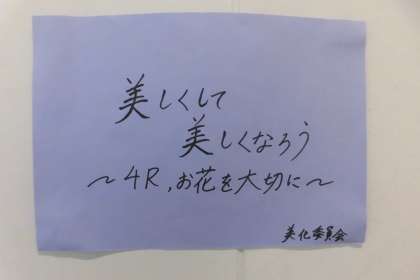 美しくして
美しくなろう
～4R,お花を大切に～
美化委員会